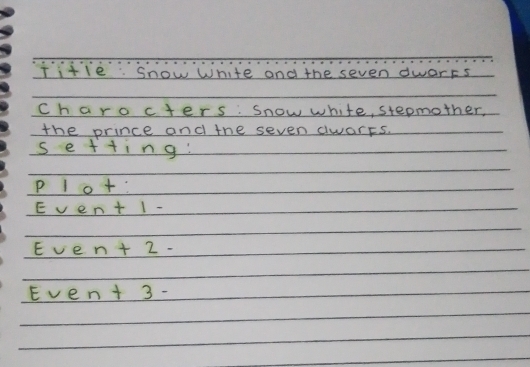 Title: Snow White and the seven dwarfs
Characters: Snow white, stepmother,
the prince and the seven dwarfs.
Setting:
Plot:
Event 1-
Event 2-
Event 3-